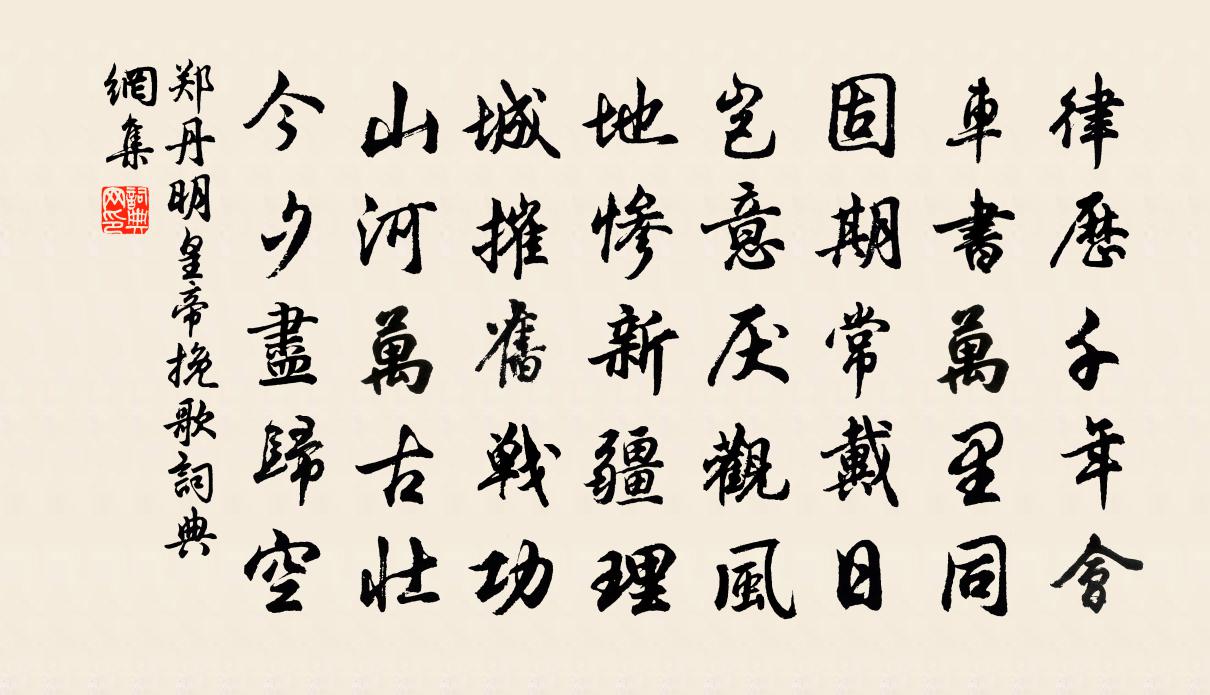 律歷千年會
車書萬里同
固期常戴日
豈意厌觀風
地慘新疆理
城摧舊戰功
山河萬古壯
今夕盡歸空
郑丹明皇帝挽歌詞典
網集
詞典
网印